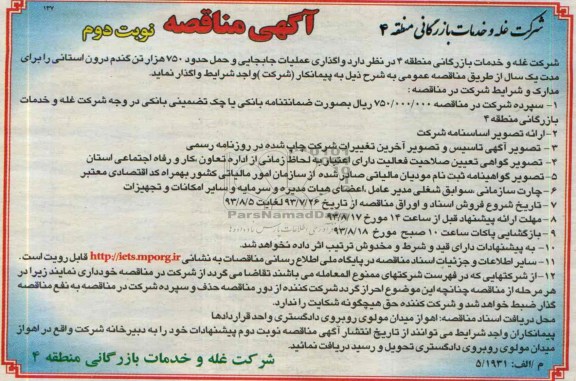 ۱۳۷
شرکت غله و خدمات بازرگانی منطقه ۴
آگهی مناقصه
نوبت دوم
شرکت غله و خدمات بازرگانی منطقه ۴ در نظر دارد واگذاری عملیات جابجایی و حمل حدود ۷۵۰ هزار تن گندم درون استانی را برای
مدت یک سال از طریق مناقصه عمومی به شرح ذیل به پیمانکار (شرکت )واجد شرایط واگذار نماید.
مدارک و شرایط شرکت در مناقصه :
۱- سپرده شرکت در مناقصه ۷۵۰/۰۰۰/۰۰۰ ریال بصورت ضمانتنامه بانکی یا چک تضمینی بانکی در وجه شرکت غله و خدمات
بازرگانی منطقه ۴
۲-ارائه تصویر اساسنامه شرکت
۳- تصویر آگهی تاسیس و تصویر آخرین تغییرات شرکت چاپ شده در روزنامه رسمی
۴- تصویر گواهی تعیین صلاحیت فعالیت دارای اعتبار به لحاظ زمانی از اداره تعاون ،کار و رفاه اجتماعی استان
۵- تصویر گواهینامه ثبت نام مودیان مالیاتی صادر شده از سازمان امور مالیاتی کشور بهمراه کد اقتصادی معتبر
۶-چارت سازمانی ،سوابق شغلی مدیر عامل ،اعضای هیات مدیره و سرمایه و سایر امکانات و تجهیزات
۷- تاریخ شروع فروش اسناد و اوراق مناقصه از تاریخ ۹۳/۷/۲۶ لغایت ۹۳/۸/۵
۸- مهلت ارائه پیشنهاد قبل از ساعت ۱۴ مورخ ۹۳/۸/۱۷
۹- بازگشایی پاکات ساعت ۱۰ صبح مورخ ۹۳/۸/۱۸
۱۰- به پیشنهادات دارای قید و شرط و مخدوش ترتیب اثر داده نخواهد شد.
۱۱- سایر اطلاعات و جزئیات اسناد مناقصه در پایگاه ملی اطلاع رسانی مناقصات به نشانی http://iets.mporg.ir قابل رویت است.
۱۲- از شرکتهایی که در فهرست شرکتهای ممنوع المعامله می باشند تقاضا می گردد از شرکت در مناقصه خودداری نمایند زیرا در
هر مرحله از مناقصه چنانچه این موضوع احراز گردد شرکت کننده از دور مناقصه حذف و سپرده شرکت در مناقصه به نفع مناقصه
گذار ضبط خواهد شد و شرکت کننده حق هیچگونه شکایت را ندارد.
محل دریافت اسناد مناقصه: اهواز میدان مولوی روبروی دادگستری واحد قراردادها
پیمانکاران واجد شرایط می توانند از تاریخ انتشار آگهی مناقصه نوبت دوم پیشنهادات خود را به دبیرخانه شرکت واقع در اهواز
میدان مولوی روبروی دادگستری تحویل و رسید دریافت نمایند.
شرکت غله و خدمات بازرگانی منطقه ۴
م /الف: ۵/۱۹۳۱
ParsNamadData